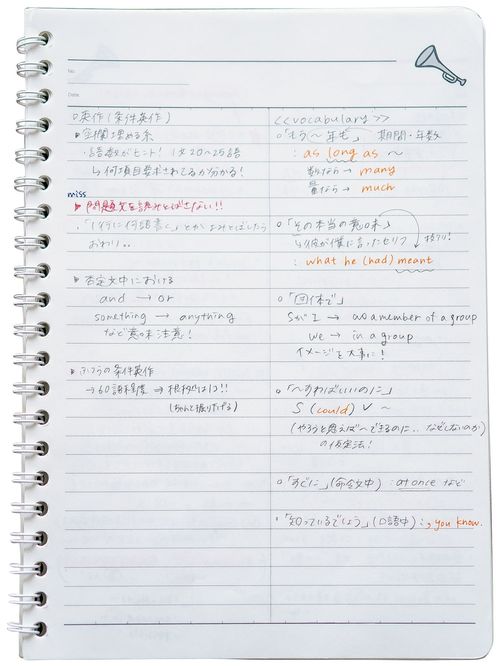 No.
Date
○英作(条件英作)
▶空欄埋める系
・語数がヒント! 1文20〜25語
↳何項目要求されてるか分かる!
miss
▶問題文を読みとばさない!!
・「1行に何語書く」とかよみとばしたら
おわり..
▶否定文中における
and → or
something → anything
など意味注意!
▶ふつうの条件英作
→60語程度 ⇒ 根拠は1つ!!
(ちゃんと掘り下げる)
<<vocabulary>>
○「もう〜年も」 期間・年数
: as long as 〜
数なら→ many
量なら→ much
○「その本当の意味」
↳彼が僕に言ったセリフ
: what he (had) meant
○「団体で」
SがI → as a member of a group
we → in a group
イメージを大事に!
○「〜すればいいのに」
S (could) V 〜
(やろうと思えば〜できるのに.. なぜしないのか)
の仮定法!
○「すぐに」(命令文中) : at once など
○「知っているでしょう」(口語中) : , you know.